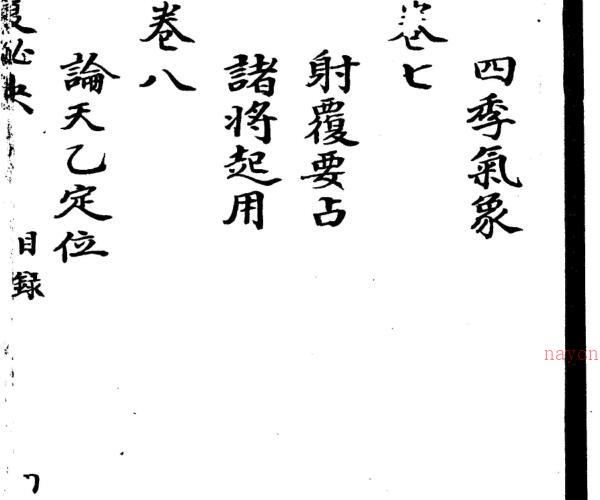 四季氣象
卷七
射覆要占
諸將起用
卷八
論天乙定位
覆祕訣
目錄
nayon